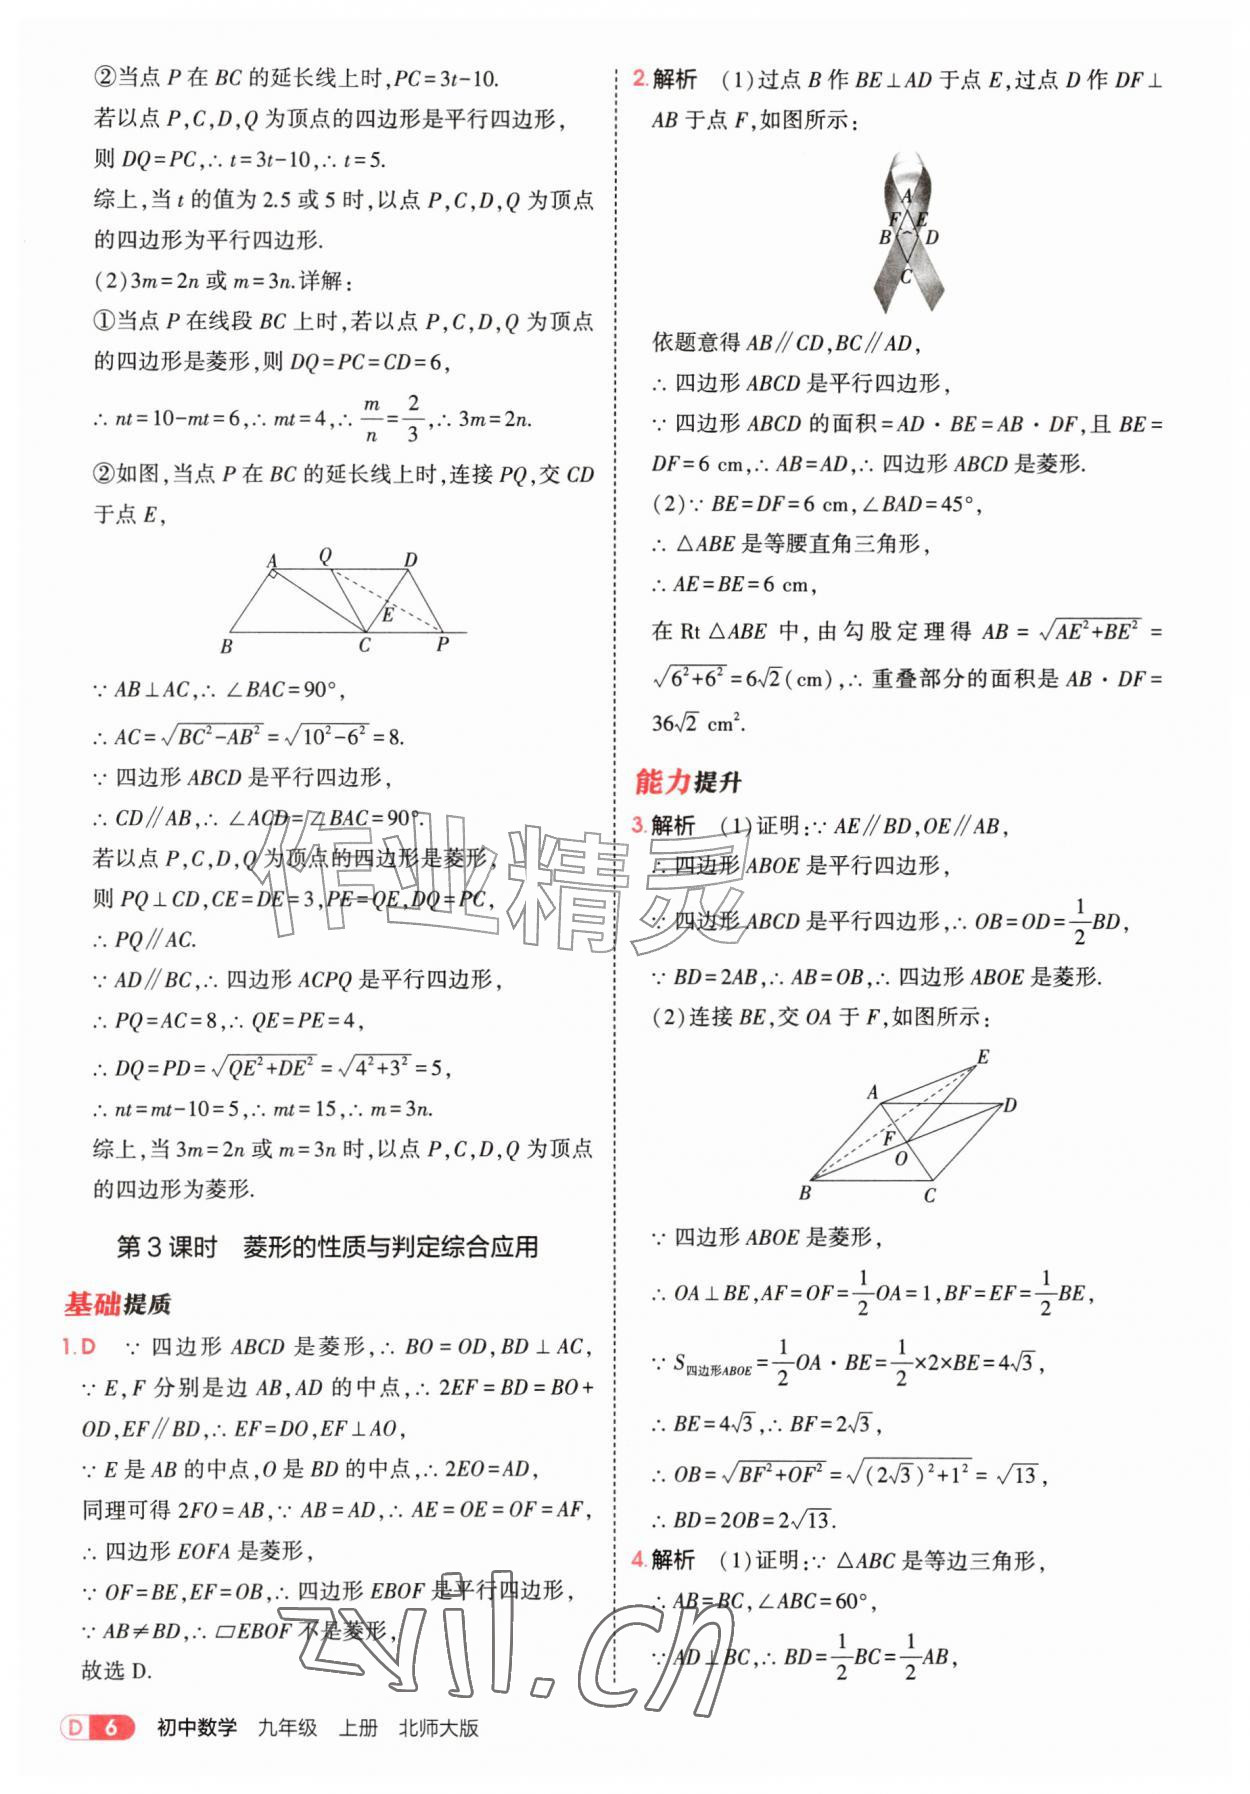 ②当点 P 在 BC 的延长线上时,PC=3t-10.
若以点 P,C,D,Q 为顶点的四边形是平行四边形,
则 DQ=PC,∴ t=3t-10,∴ t=5.
综上,当 t 的值为 2.5 或 5 时,以点 P,C,D,Q 为顶点
的四边形为平行四边形.
(2)3m=2n 或 m=3n.详解:
①当点 P 在线段 BC 上时,若以点 P,C,D,Q 为顶点
的四边形是菱形,则 DQ=PC=CD=6,
∴ nt=10-mt=6,∴ mt=4,∴ m/n=2/3,∴ 3m=2n.
②如图,当点 P 在 BC 的延长线上时,连接 PQ,交 CD
于点 E,
A Q D
E
B C P
∵ AB⊥AC,∴ ∠BAC=90°,
∴ AC=√(BC²-AB²)=√(10²-6²)=8.
∵ 四边形 ABCD 是平行四边形,
∴ CD∥AB,∴ ∠ACD=∠BAC=90°.
若以点 P,C,D,Q 为顶点的四边形是菱形,
则 PQ⊥CD,CE=DE=3,PE=QE,DQ=PC,
∴ PQ∥AC.
∵ AD∥BC,∴ 四边形 ACPQ 是平行四边形,
∴ PQ=AC=8,∴ QE=PE=4,
∴ DQ=PD=√(QE²+DE²)=√(4²+3²)=5,
∴ nt=mt-10=5,∴ mt=15,∴ m=3n.
综上,当 3m=2n 或 m=3n 时,以点 P,C,D,Q 为顶点
的四边形为菱形.
第 3 课时 菱形的性质与判定综合应用
基础提质
1.D ∵ 四边形 ABCD 是菱形,∴ BO=OD,BD⊥AC,
∵ E,F 分别是边 AB,AD 的中点,∴ 2EF=BD=BO+
OD,EF∥BD,∴ EF=DO,EF⊥AO,
∵ E 是 AB 的中点,O 是 BD 的中点,∴ 2EO=AD,
同理可得 2FO=AB,∵ AB=AD,∴ AE=OE=OF=AF,
∴ 四边形 EOFA 是菱形,
∵ OF=BE,EF=OB,∴ 四边形 EBOF 是平行四边形,
∵ AB≠BD,∴ ▱EBOF 不是菱形,
故选 D.
2.解析 (1)过点 B 作 BE⊥AD 于点 E,过点 D 作 DF⊥
AB 于点 F,如图所示:
A
F E
B D
C
依题意得 AB∥CD,BC∥AD,
∴ 四边形 ABCD 是平行四边形,
∵ 四边形 ABCD 的面积=AD·BE=AB·DF,且 BE=
DF=6 cm,∴ AB=AD,∴ 四边形 ABCD 是菱形.
(2)∵ BE=DF=6 cm,∠BAD=45°,
∴ △ABE 是等腰直角三角形,
∴ AE=BE=6 cm,
在 Rt △ABE 中,由勾股定理得 AB=√(AE²+BE²)=
√(6²+6²)=6√2(cm),∴ 重叠部分的面积是 AB·DF=
36√2 cm².
能力提升
3.解析 (1)证明:∵ AE∥BD,OE∥AB,
∴ 四边形 ABOE 是平行四边形,
∵ 四边形 ABCD 是平行四边形,∴ OB=OD=1/2BD,
∵ BD=2AB,∴ AB=OB,∴ 四边形 ABOE 是菱形.
(2)连接 BE,交 OA 于 F,如图所示:
E
A D
F
O
B C
∵ 四边形 ABOE 是菱形,
∴ OA⊥BE,AF=OF=1/2OA=1,BF=EF=1/2BE,
∵ S四边形ABOE=1/2OA·BE=1/2×2×BE=4√3,
∴ BE=4√3,∴ BF=2√3,
∴ OB=√(BF²+OF²)=√((2√3)²+1²)=√13,
∴ BD=2OB=2√13.
4.解析 (1)证明:∵ △ABC 是等边三角形,
∴ AB=BC,∠ABC=60°,
∵ AD⊥BC,∴ BD=1/2BC=1/2AB,
作业精灵
zyjl.cn
D 6 初中数学 九年级 上册 北师大版